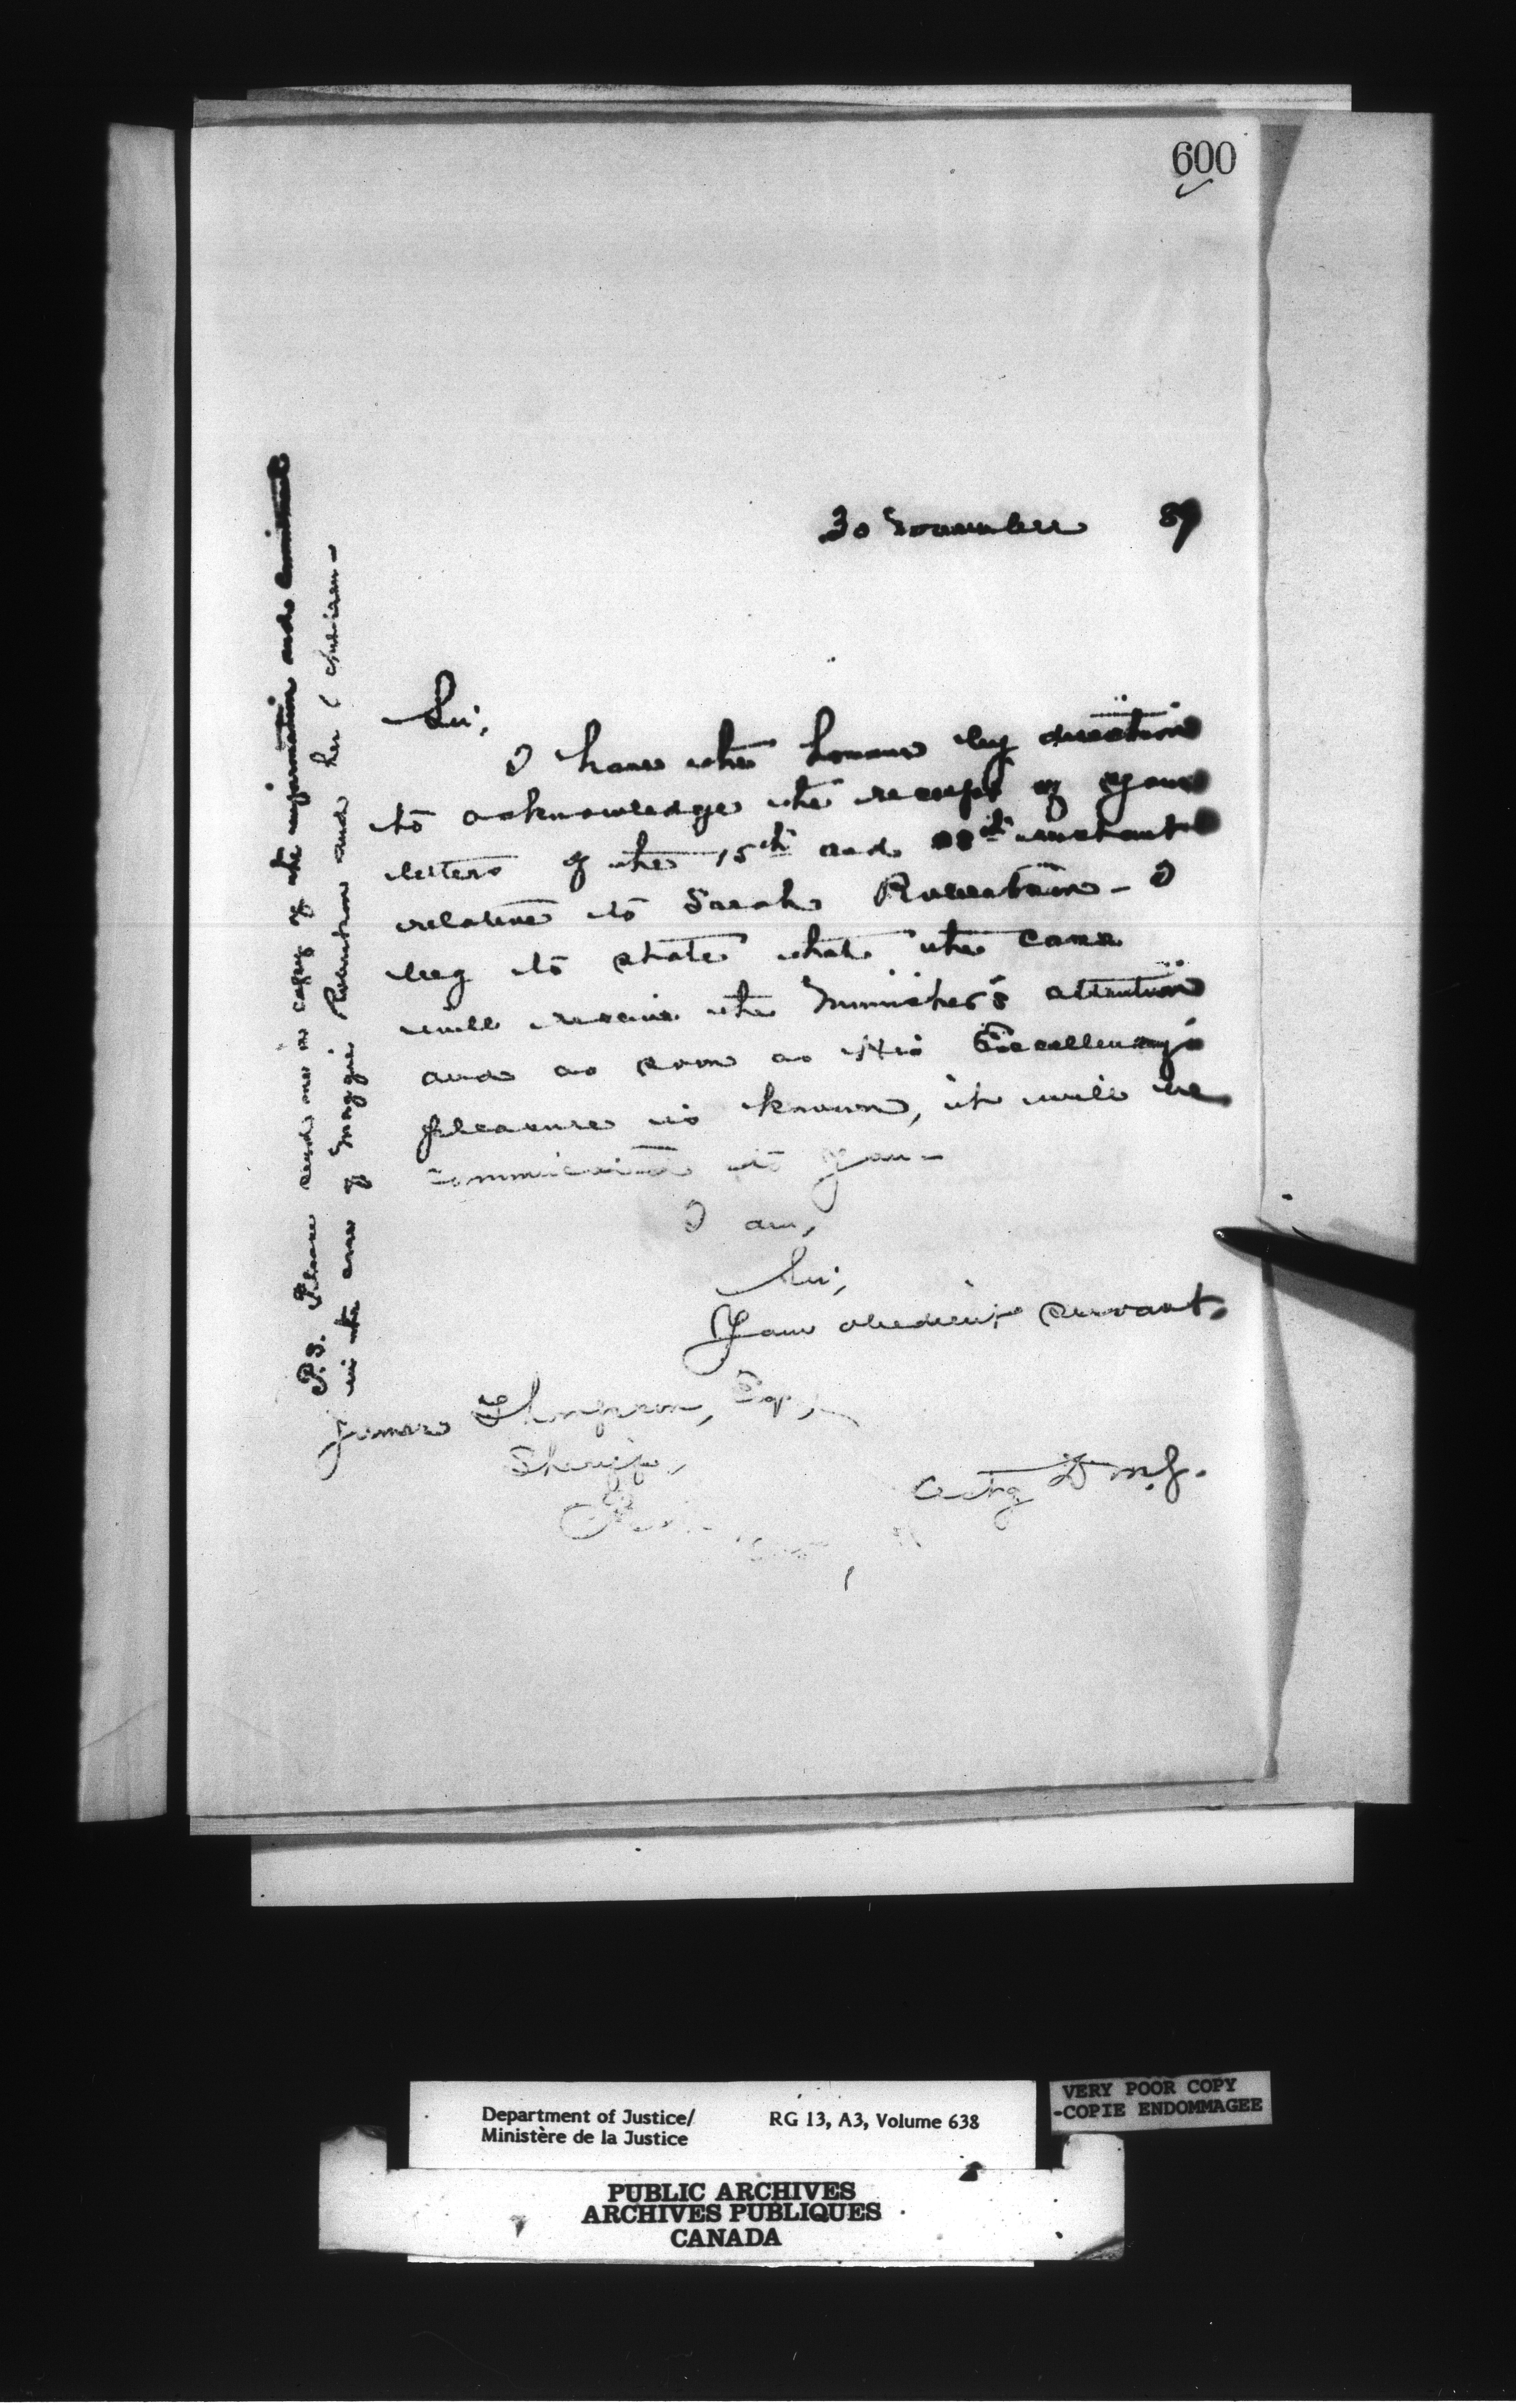 600
30 November 89
Sir,
I have the honour by direction
to acknowledge the receipt of your
letters of the 15th and 28th instant
relative to Sarah Robertson - I
beg to state that the case
will receive the Minister's attention
and as soon as His Excellency's
pleasure is known, it will be
communicated to you -
I am,
Sir,
Your obedient servant,
James Thompson, Esq.,
Sheriff,
Actg D. M. J.
P.S. Please send me a copy of the information and commitment
in the case of Maggie Robertson and her children -
Department of Justice/
Ministère de la Justice
RG 13, A3, Volume 638
VERY POOR COPY
-COPIE ENDOMMAGEE
PUBLIC ARCHIVES
ARCHIVES PUBLIQUES
CANADA